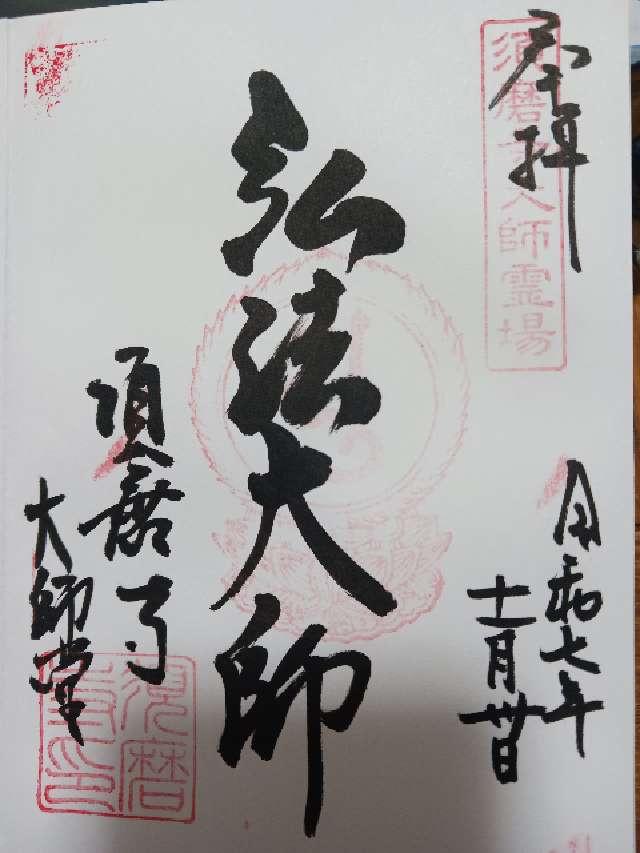 奉拝
須磨寺大師霊場
令和七年
十二月廿日
弘法大師
須磨寺
大師堂
須磨寺印